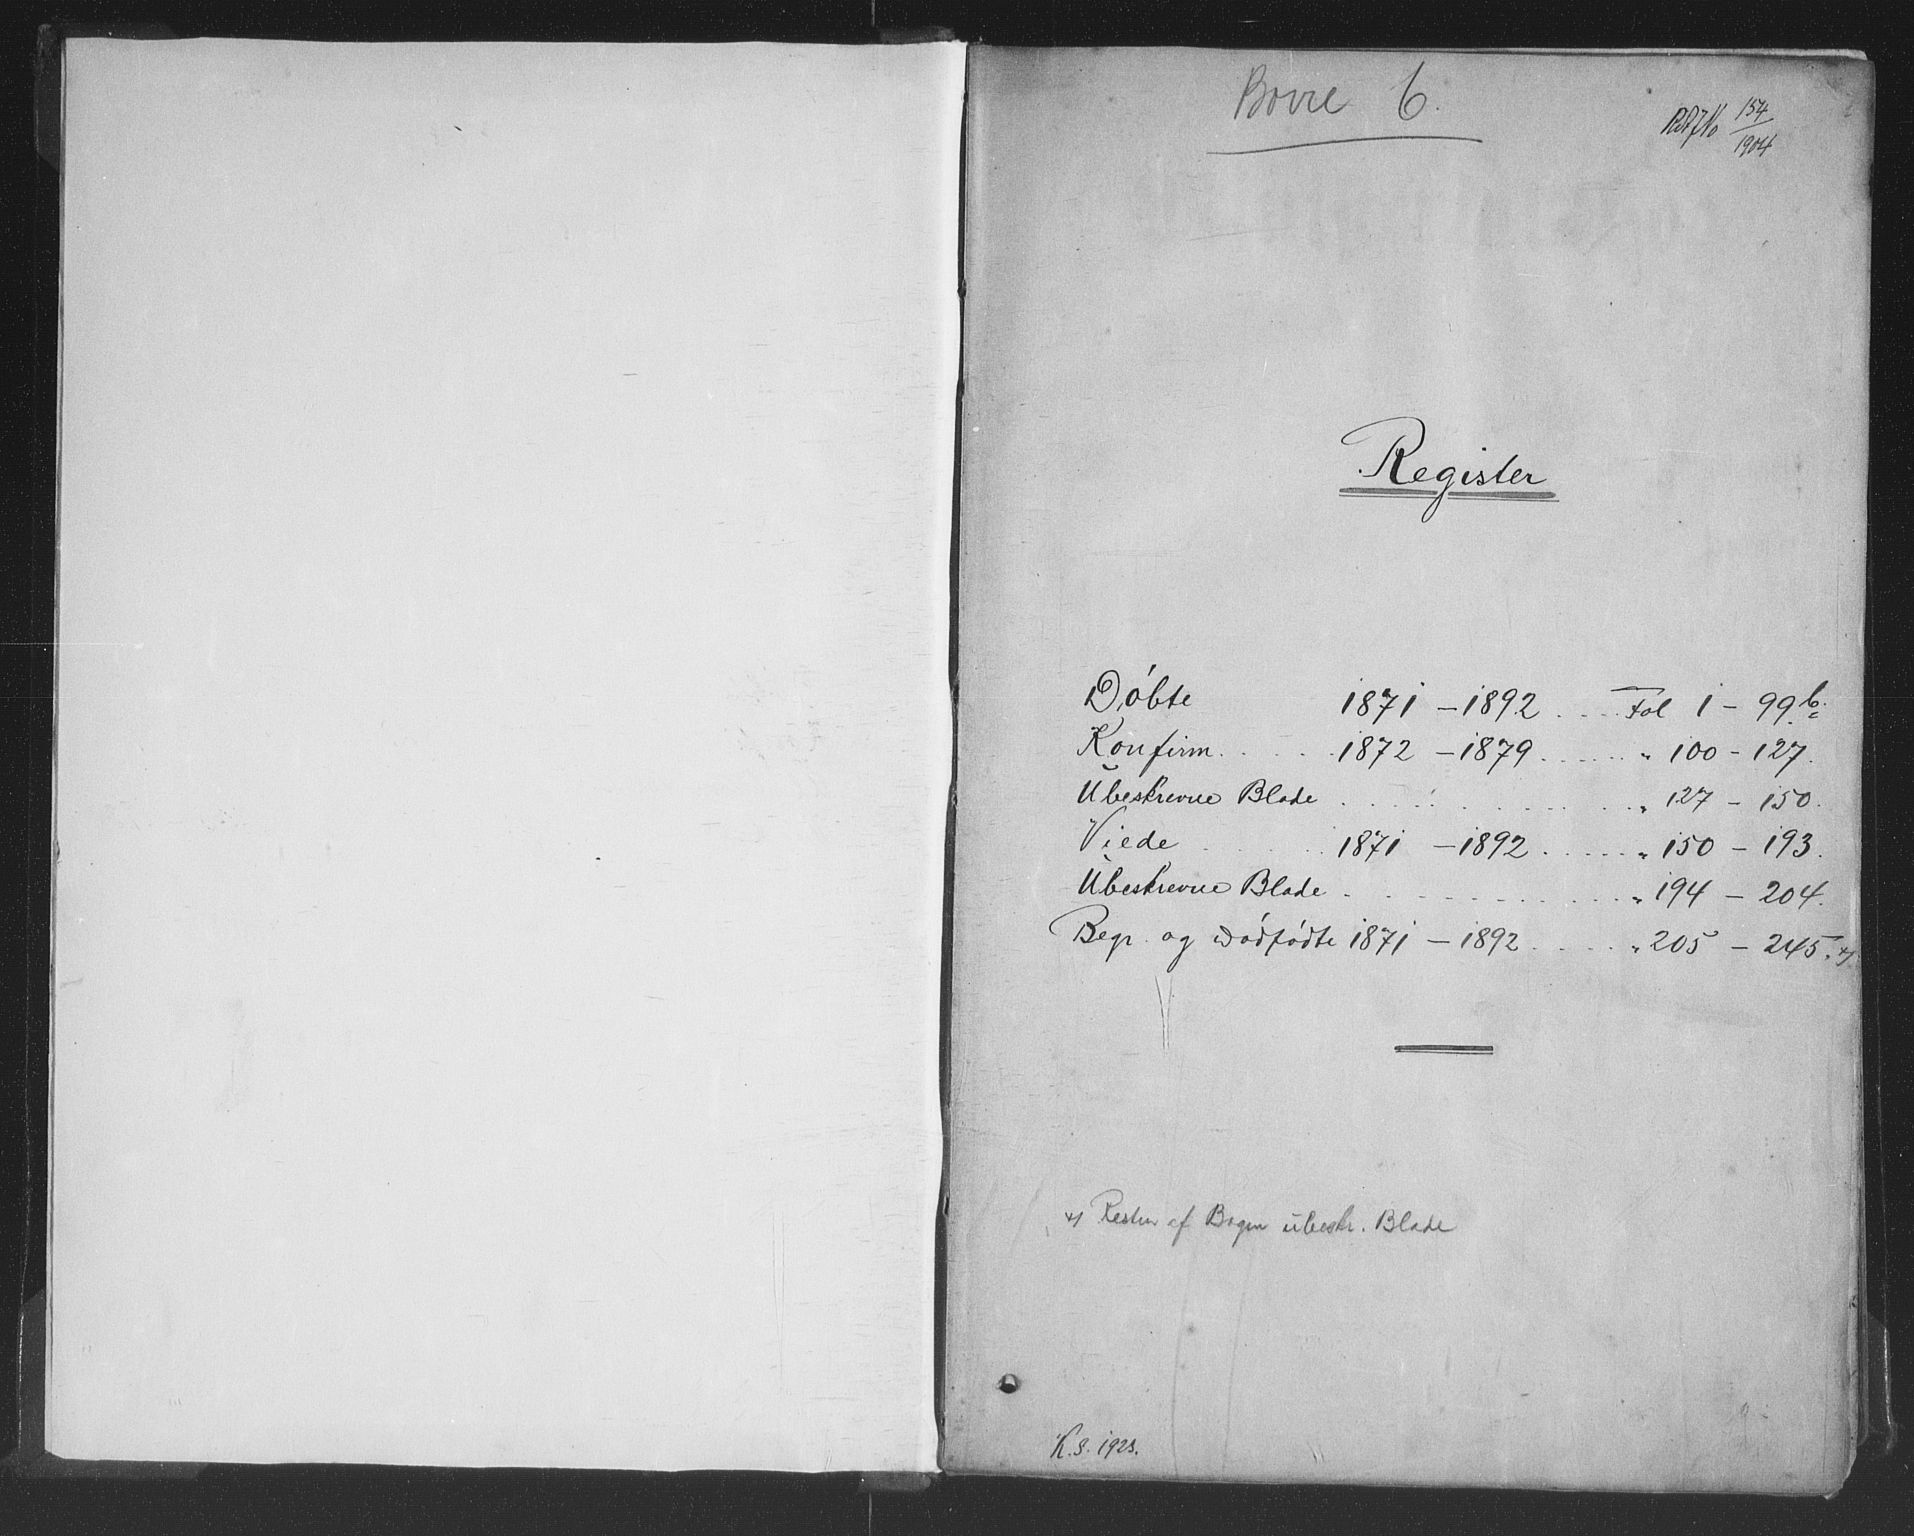 Borre 6.
154
1904
Register
Döbte 1871 - 1892 .... Fol 1 - 99.b.
Konfirm. .... 1872 - 1879 ...... " 100 - 127.
Ubeskrevne Blade .......... " 127 - 150.
Viede .... 1871 - 1892 ..... " 150 - 193.
Ubeskrevne Blade .......... " 194 - 204.
Begr. og Dödfödte 1871 - 1892 ..... " 205 - 245. x)
x) Resten af Bogen ubeskr. Blade
K.S. 1923.